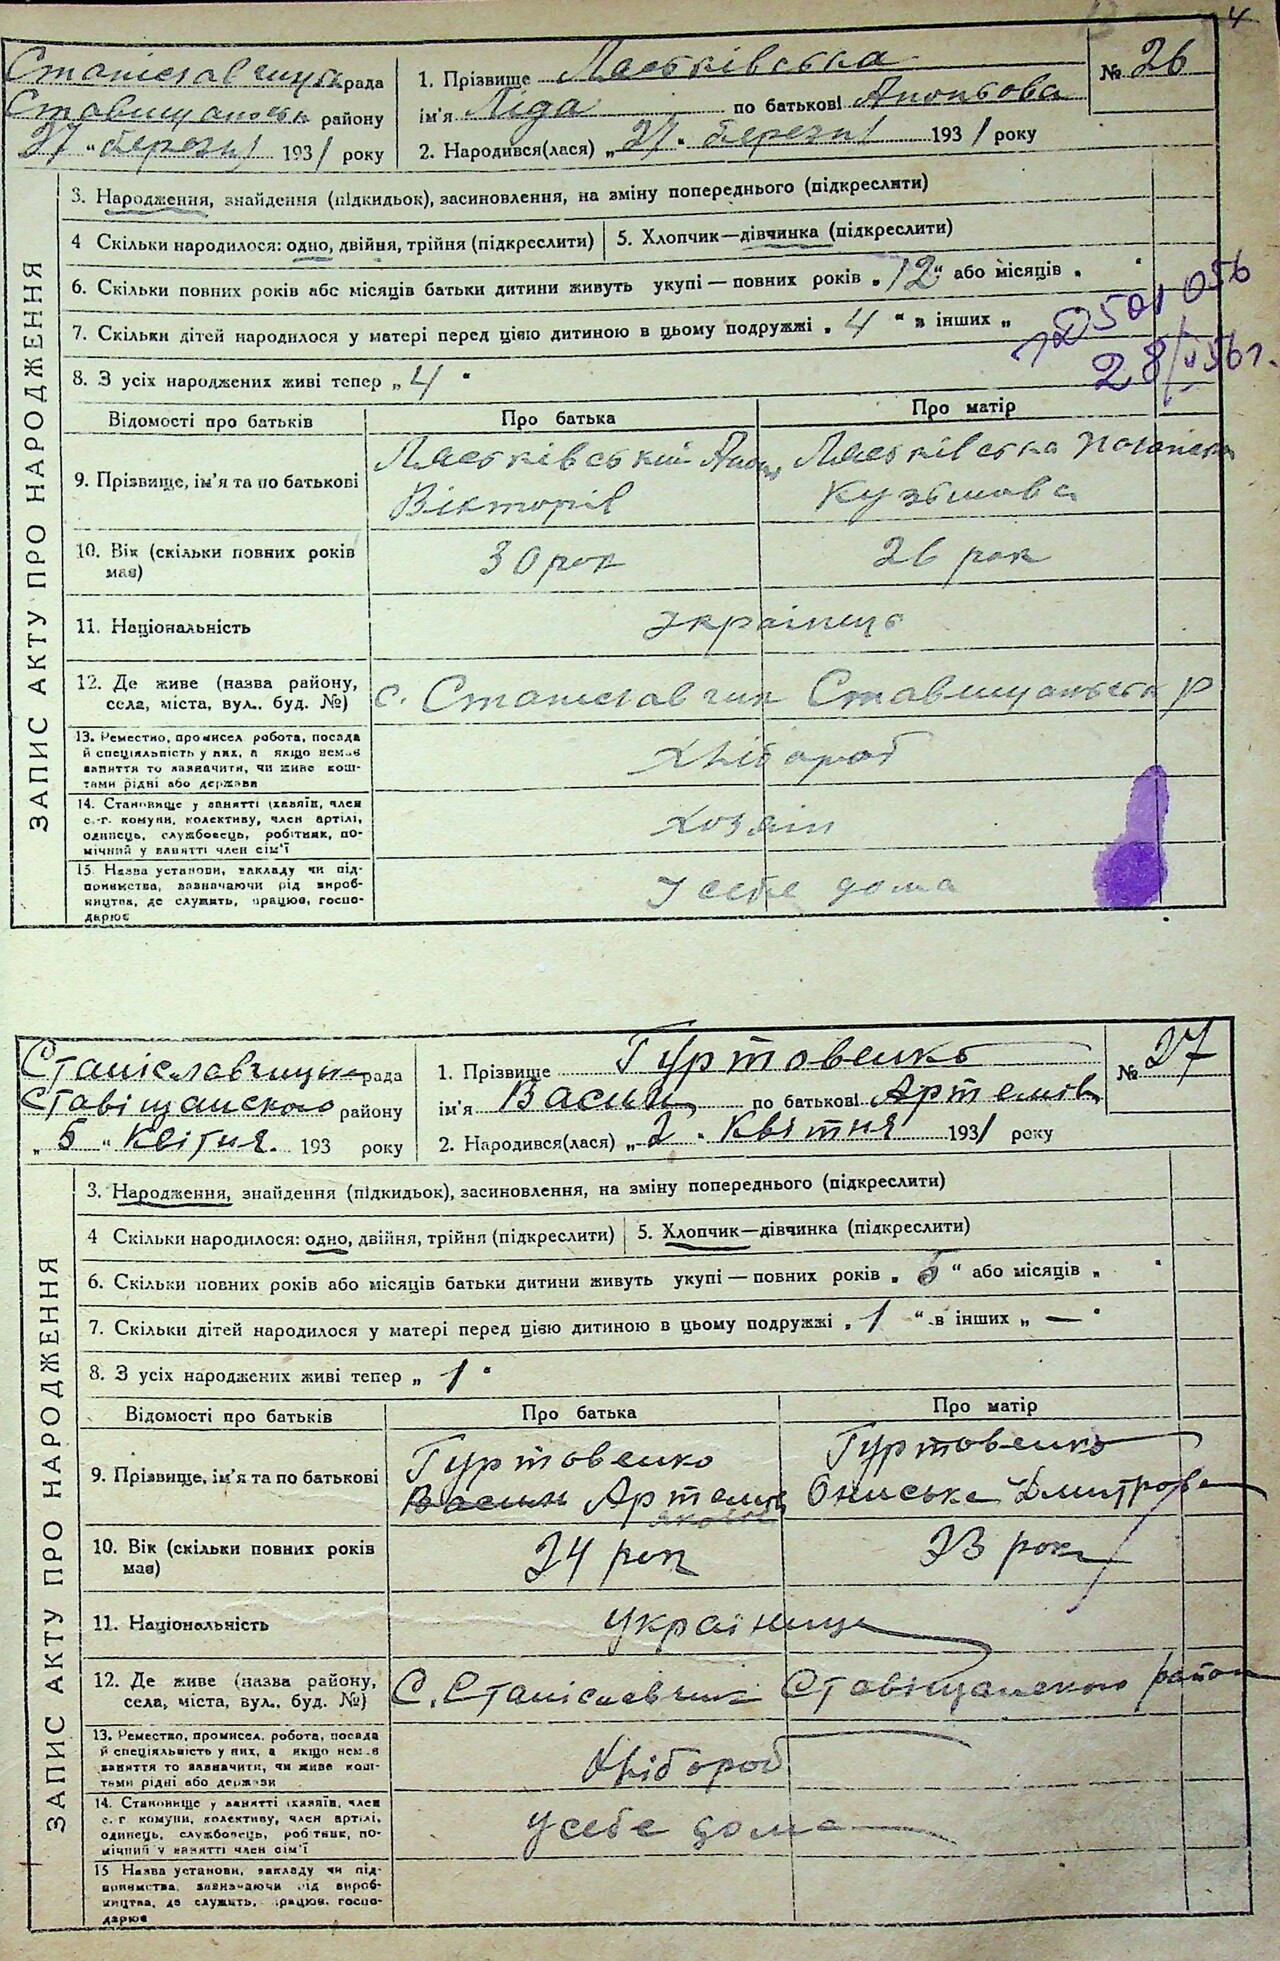 4
Станіславчицька рада
Ставищанськ району
27 "березня 1931 року
1. Прізвище Ляськівська
ім'я Ліда по батькові
2. Народився(лася) „27" березня 1931 року
№ 26
ЗАПИС АКТУ ПРО НАРОДЖЕННЯ
3. Народження, знайдення (підкидьок), засиновлення, на зміну попереднього (підкреслити)
4 Скільки народилося: одно, двійня, трійня (підкреслити)
5. Хлопчик—дівчинка (підкреслити)
6. Скільки повних років або місяців батьки дитини живуть укупі — повних років „12" або місяців „ "
7. Скільки дітей народилося у матері перед цією дитиною в цьому подружжі „4" в інших „
8. З усіх народжених живі тепер „4"
Відомості про батьків
Про батька
Про матір
9. Прізвище, ім'я та по батькові
Ляськівський
Вікторів
Ляськівська
Кузьмова
10. Вік (скільки повних років
має)
30 рок
26 рок
11. Національність
українець
12. Де живе (назва району,
села, міста, вул., буд. №)
с. Станіславчик Ставищанськ р
13. Ремество, промисел робота, посада
й спеціяльність у них, а якщо немає
заняття то зазначити, чи живе кош-
тами рідні або держави
Хлібороб
14. Становище у занятті (хазяїн, член
с.-г. комуни, колективу, член артілі,
одинець, службовець, робітник, по-
мічний у занятті член сім'ї
хозяїн
15. Назва установи, закладу чи під-
приємства, зазначаючи рід вироб-
ництва, де служить, працює, госпо-
дарює
у себе дома
Станіславчицька рада
Ставіщанского району
„5" Квітня 193 року
1. Прізвище Гуртовенко
ім'я Васил по батькові Артемів
2. Народився(лася) „2" Квітня 1931 року
№ 27
ЗАПИС АКТУ ПРО НАРОДЖЕННЯ
3. Народження, знайдення (підкидьок), засиновлення, на зміну попереднього (підкреслити)
4 Скільки народилося: одно, двійня, трійня (підкреслити)
5. Хлопчик—дівчинка (підкреслити)
6. Скільки повних років або місяців батьки дитини живуть укупі — повних років „5" або місяців „ "
7. Скільки дітей народилося у матері перед цією дитиною в цьому подружжі „1" в інших „—"
8. З усіх народжених живі тепер „1"
Відомості про батьків
Про батька
Про матір
9. Прізвище, ім'я та по батькові
Гуртовенко
Васил Артем
Гуртовенко
Ониська Дмитрова
10. Вік (скільки повних років
має)
24 рок
23 рок
11. Національність
українці
12. Де живе (назва району,
села, міста, вул., буд. №)
С. Станіславчик Ставіщанского район
13. Ремество, промисел, робота, посада
й спеціяльність у них, а якщо немає
заняття то зазначити, чи живе кош-
тами рідні або держави
Хлібороб
14. Становище у занятті (хазяїн, член
с. г. комуни, колективу, член артілі,
одинець, службовець, робітник, по-
мічний у занятті член сім'ї
у себе дома
15 Назва установи, закладу чи під-
приємства, зазначаючи рід вироб-
ництва, де служить, працює, госпо-
дарює